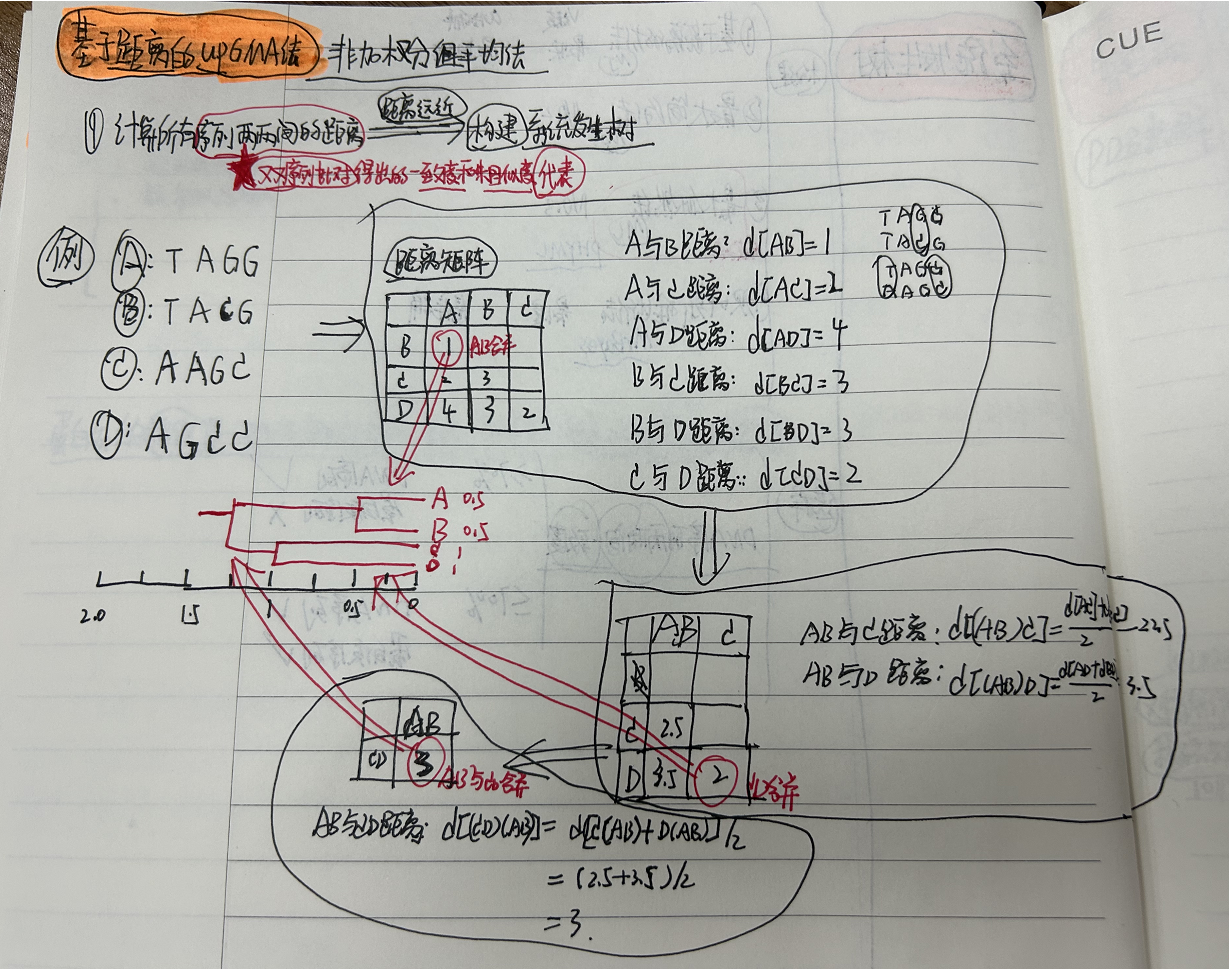 基于距离的UPGMA法 非加权分组平均法
CUE
① 计算所有序列两两间的距离 距离远近 构建 系统发生树
★ 双序列比对得出的一致度和相似度代表
例
A: TAGG
B: TACG
C: AAGC
D: AGCC
距离矩阵
A B C
B 1 AB合并
C 2 3
D 4 3 2
A与B距离: d[AB]=1
A与C距离: d[AC]=2
A与D距离: d[AD]=4
B与C距离: d[BC]=3
B与D距离: d[BD]=3
C与D距离: d[CD]=2
TAGG
TACG
TAGG
AAGC
A 0.5
B 0.5
C 1
D 1
2.0 1.5 1 0.5 0
AB C
C 2.5
D 3.5 2 CD合并
AB与C距离: d[(AB)C]=
AB与D距离: d[(AB)D]= 3.5
AB
CD 3 AB与CD合并
AB与CD距离: d[(CD)(AB)]= d[C(AB)+D(AB)]/2
=(2.5+3.5)/2
=3.